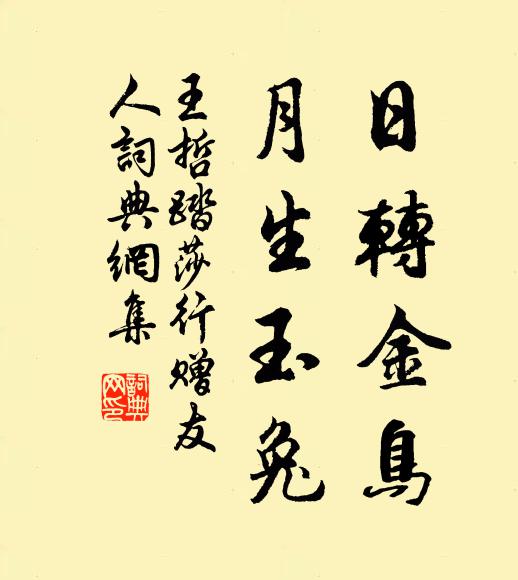 日轉金烏
月生玉兔
王哲踏莎行贈友
人詞典網集
詞典
网印